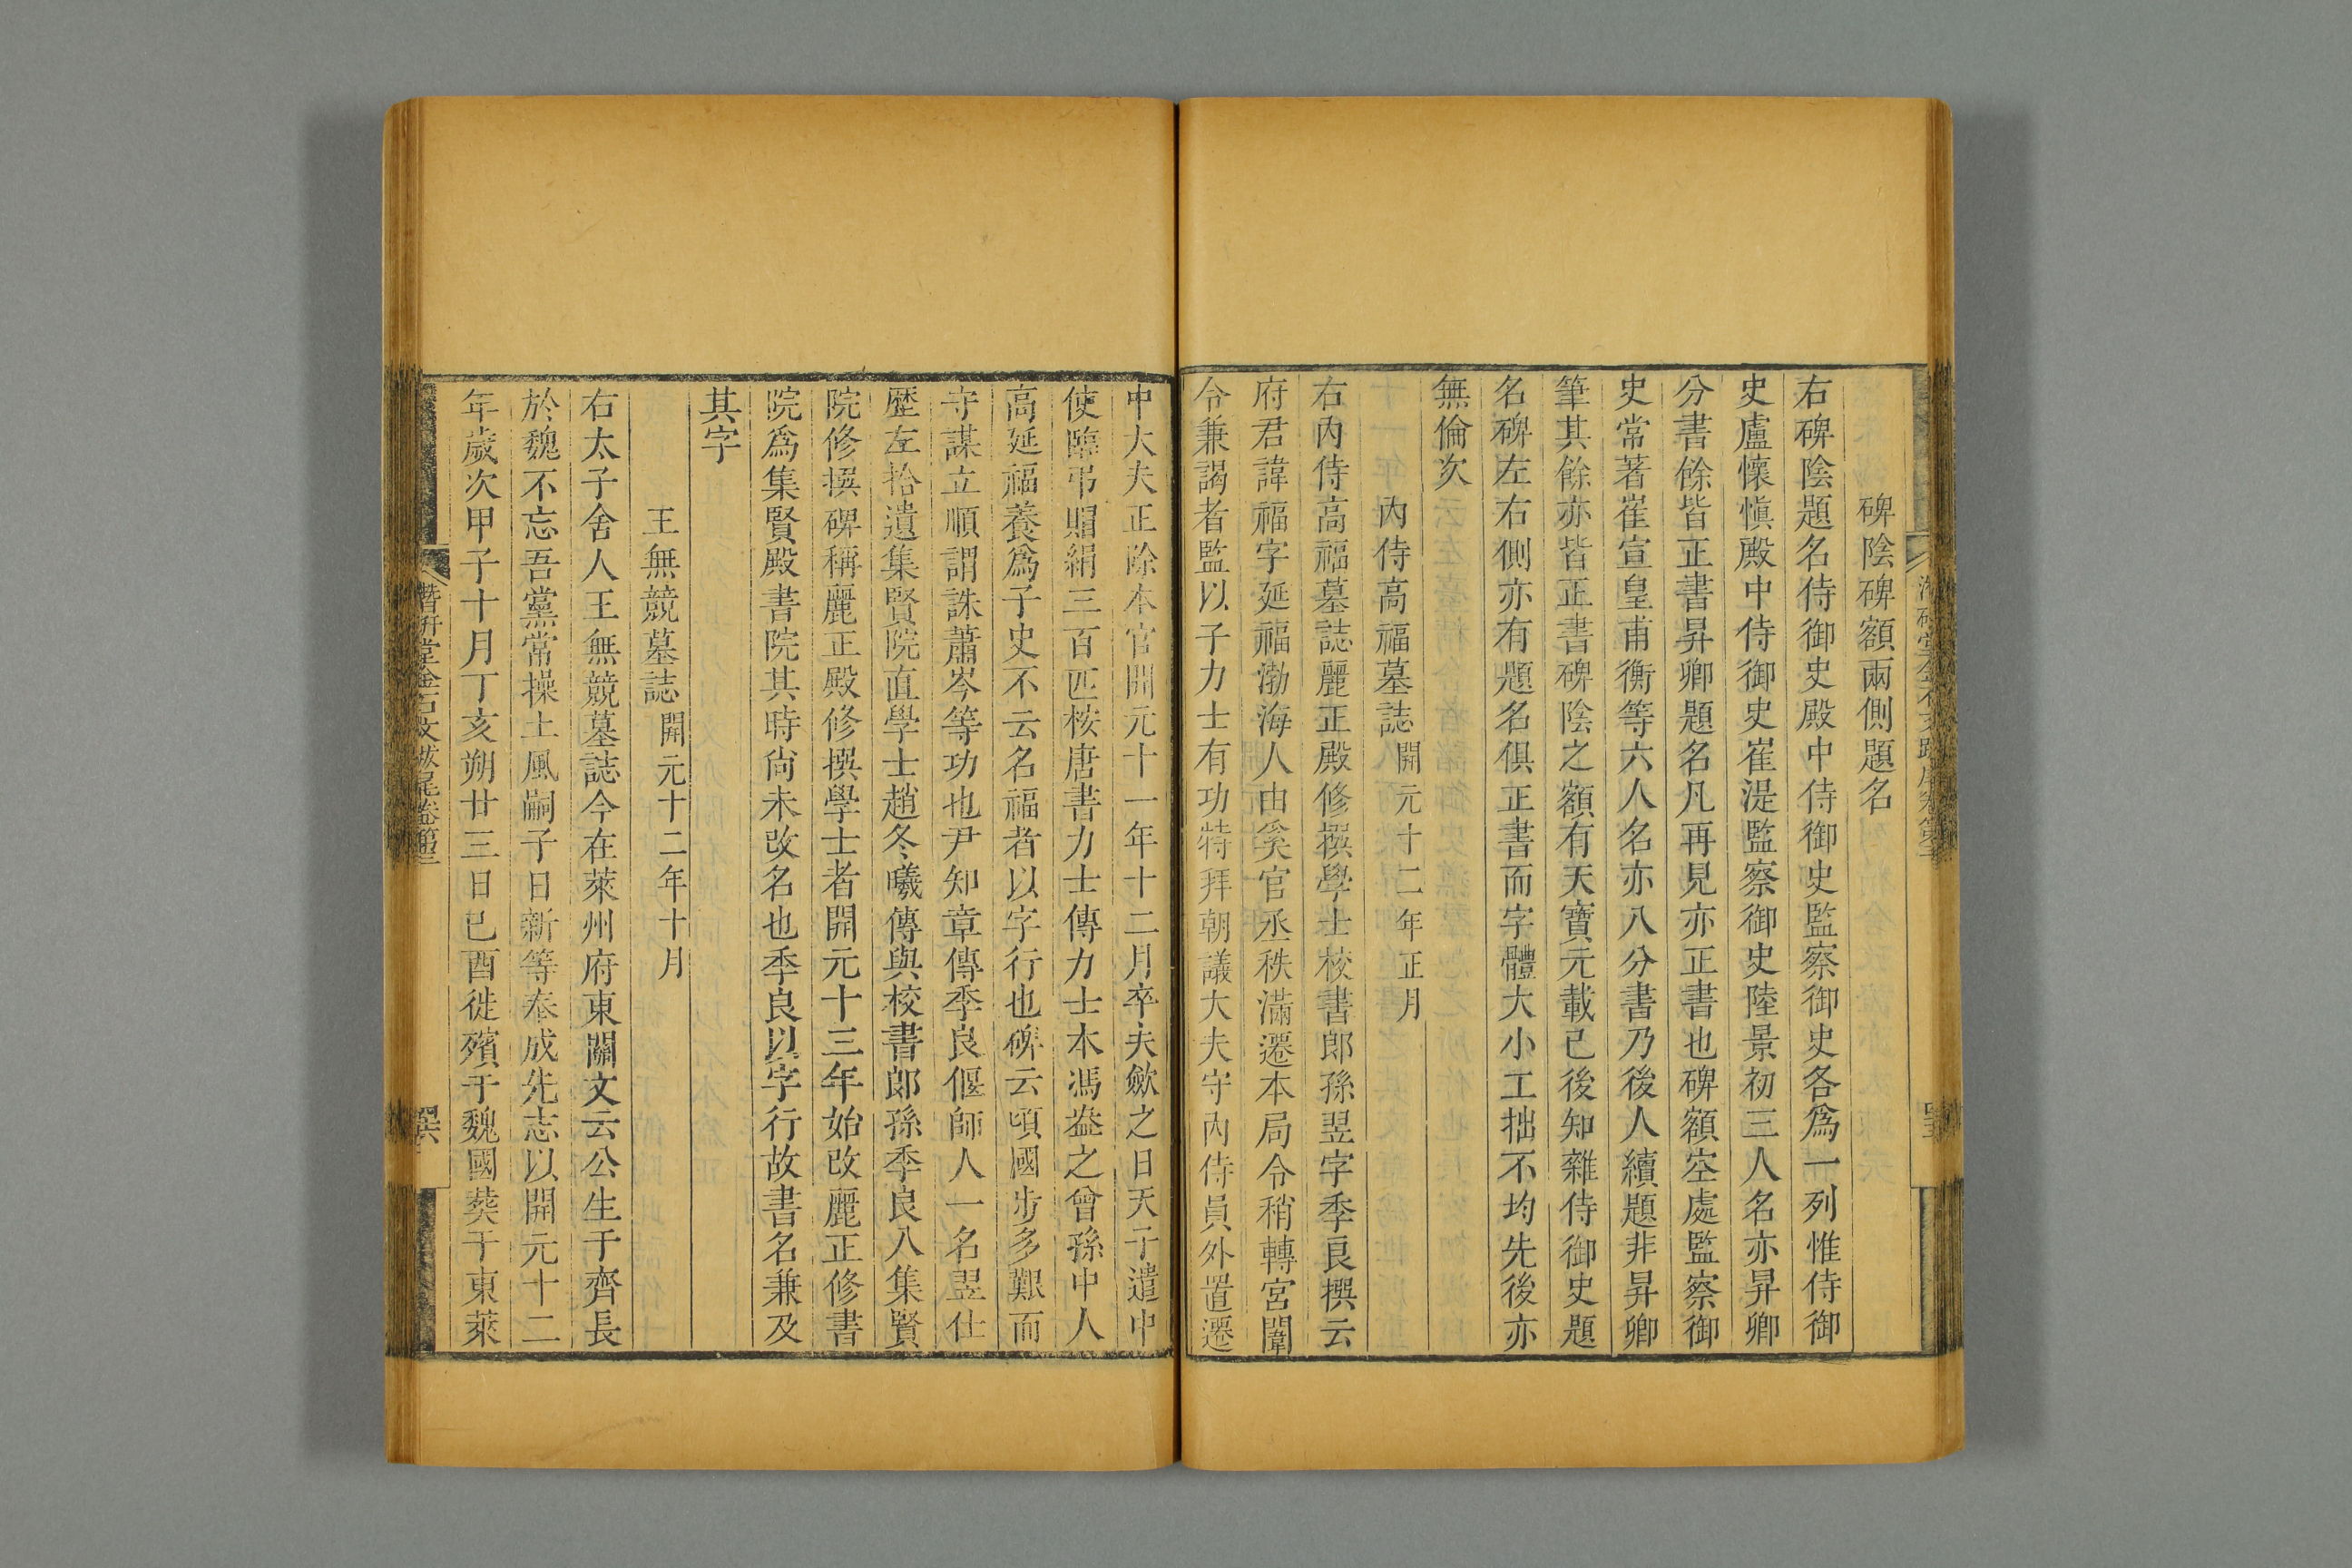 碑陰碑額兩側題名
右碑陰題名侍御史殿中侍御史監察御史各爲一列惟侍御
史盧懷愼殿中侍御史崔湜監察御史陸景初三人名亦昇卿
分書餘皆正書昇卿題名凡再見亦正書也碑額空處監察御
史常著崔宣皇甫衡等六人名亦八分書乃後人續題非昇卿
筆其餘亦皆正書碑陰之額有天寶元載已後知雜侍御史題
名碑左右側亦有題名俱正書而字體大小工拙不均先後亦
無倫次
內侍高福墓誌開元十二年正月
右內侍高福墓誌麗正殿修撰學士校書郎孫翌字季良撰云
府君諱福字延福渤海人由奚官丞秩滿遷本局令稍轉宮闈
令兼謁者監以子力士有功特拜朝議大夫守內侍員外置遷
中大夫正除本官開元十一年十二月卒夫歛之日天子遣中
使臨弔賵絹三百匹桉唐書力士傳力士本馮盎之曾孫中人
高延福養爲子史不云名福者以字行也碑云頃國步多艱而
守謀立順謂誅蕭岑等功也尹知章傳季良偃師人一名翌仕
歷左拾遺集賢院直學士趙冬曦傳與校書郎孫季良入集賢
院修撰碑稱麗正殿修撰學士者開元十三年始改麗正修書
院爲集賢殿書院其時尙未改名也季良以字行故書名兼及
其字
王無競墓誌開元十二年十月
右太子舍人王無競墓誌今在萊州府東關文云公生于齊長
於魏不忘吾黨常操土風嗣子日新等奉成先志以開元十二
年歲次甲子十月丁亥朔廿三日己酉徙殯于魏國葬于東萊
潛研堂金石文跋尾卷第